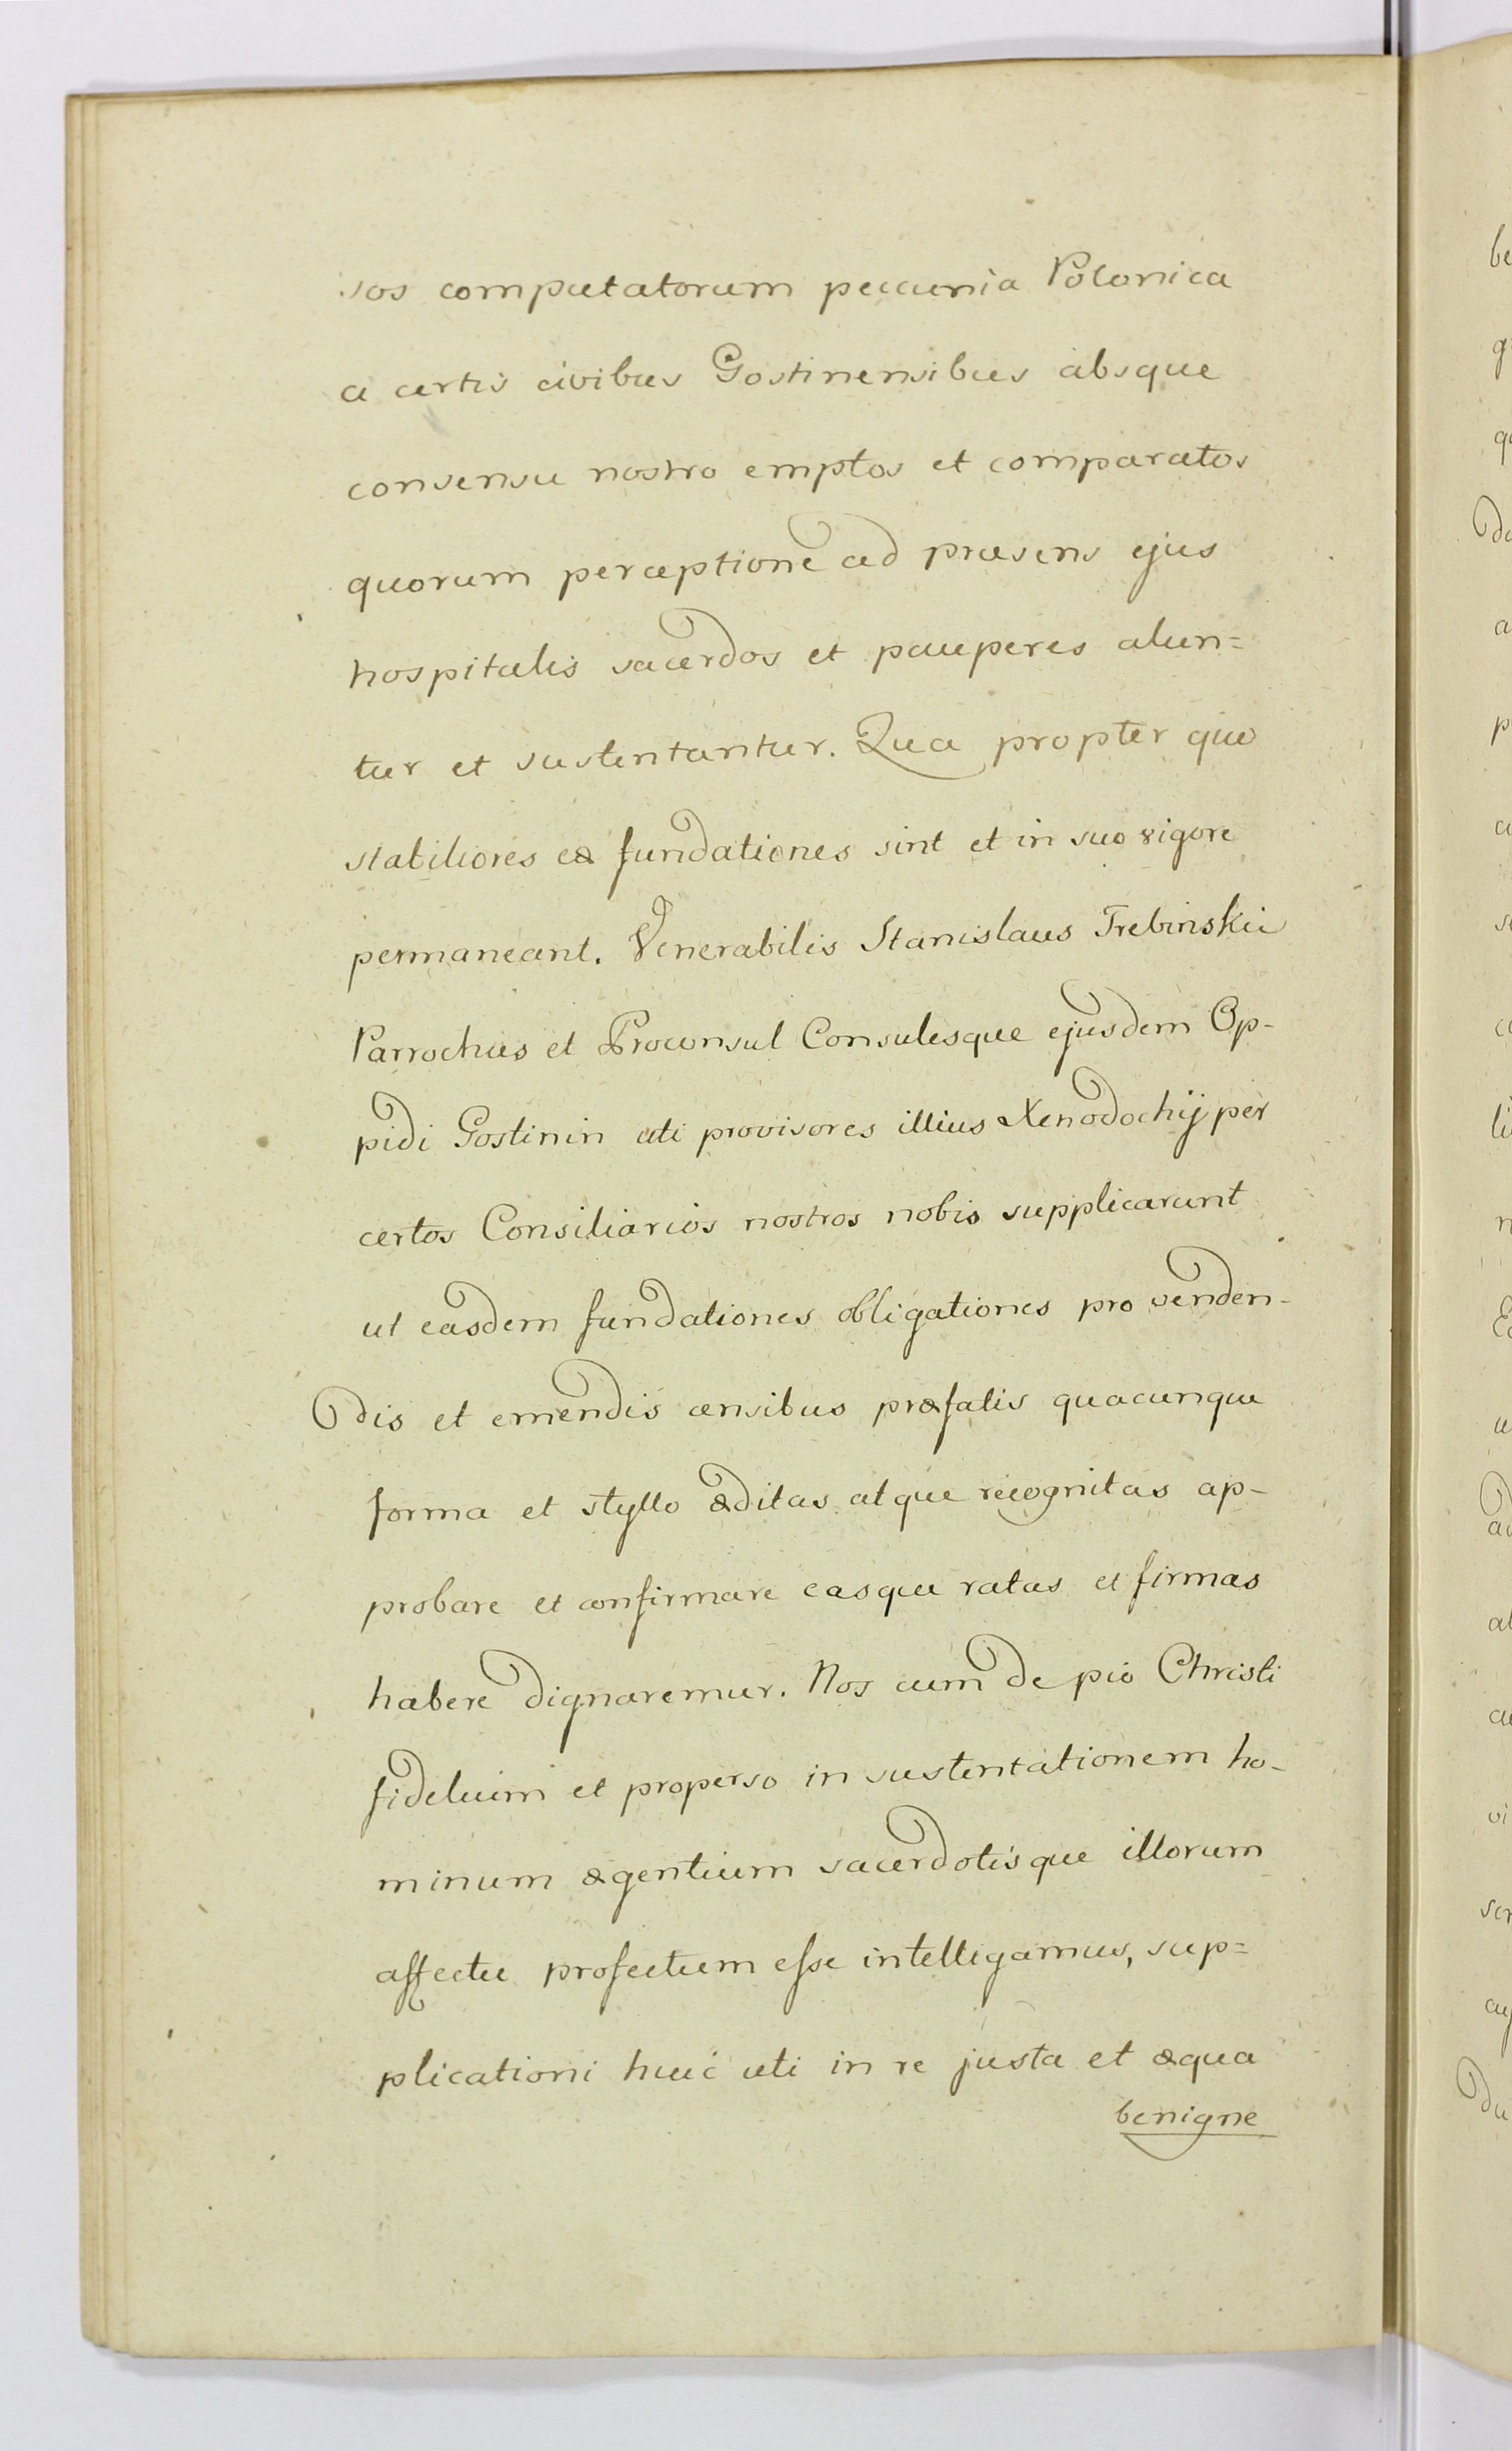 sos computatorum peccunia Polonica
a certis civibus Gostinensibus absque
consensu nostro emptos et comparatos
quorum perceptione ad præsens ejus
hospitalis sacerdos et pauperes alun=
tur et sustentantur. Qua propter quo
stabiliores eæ fundationes sint et in suo vigore
permaneant. Venerabilis Stanislaus Trebinskii
Parrochus et Proconsul Consulesque ejusdem Op-
pidi Gostinin uti provisores illius Xenodochij per
certos Consiliarios nostros nobis supplicarunt
ut easdem fundationes obligationes pro venden-
dis et emendis censibus præfatis quacunque
forma et styllo æditas atque recognitas ap-
probare et confirmare easque ratas et firmas
habere dignaremur. Nos cum de pio Christi
fideluim et properso in sustentationem ho-
minum ægentium sacerdotisque illorum
affectu profectum esse intelligamus, sup=
plicationi huic uti in re justa et æqua
benigne